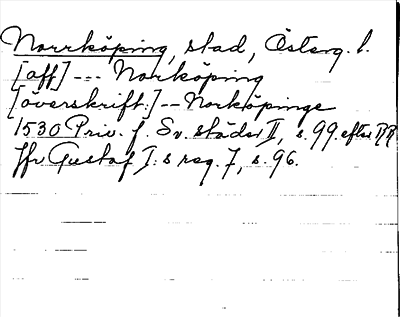 Norrköping, stad, Österg. l.
[aff] --- Norköping
[överskrift:] -- Norköpinge
1530 Priv. f. Sv. städer II, s. 99. efter RR
Jfr Gustaf I:s reg. 7, s. 96.